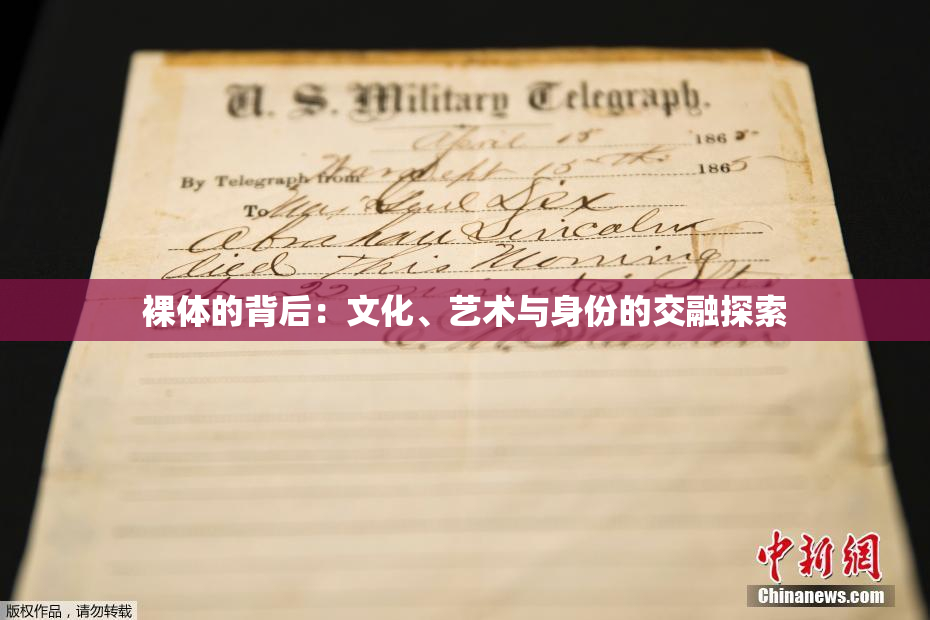 U. S. Military Telegraph.
April 15 1865-
By Telegraph from War Dept 15th 1865
To Maj Genl Dix
Abraham Lincoln
died This Morning
at 22 minutes after
裸体的背后：文化、艺术与身份的交融探索
E. M. Stanton
中新網
Chinanews.com
版权作品，请勿转载